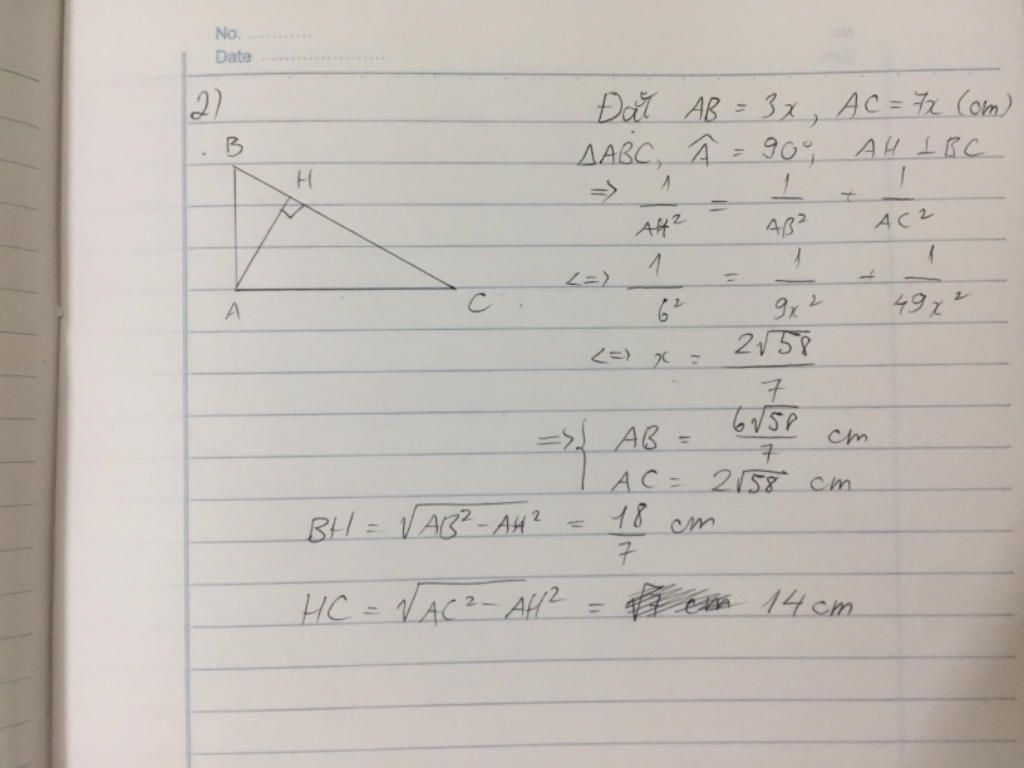 No. ...........
Date ....................
2)
Đặt AB = 3x, AC = 7x (cm)
B
ΔABC, Â = 90°, AH ⊥ BC
H
=> 1/AH² = 1/AB² + 1/AC²
<=> 1/6² = 1/9x² + 1/49x²
A
C
<=> x = 2√58/7
=> { AB = 6√58/7 cm
AC = 2√58 cm
BH = √AB² - AH² = 18/7 cm
HC = √AC² - AH² = 14 cm